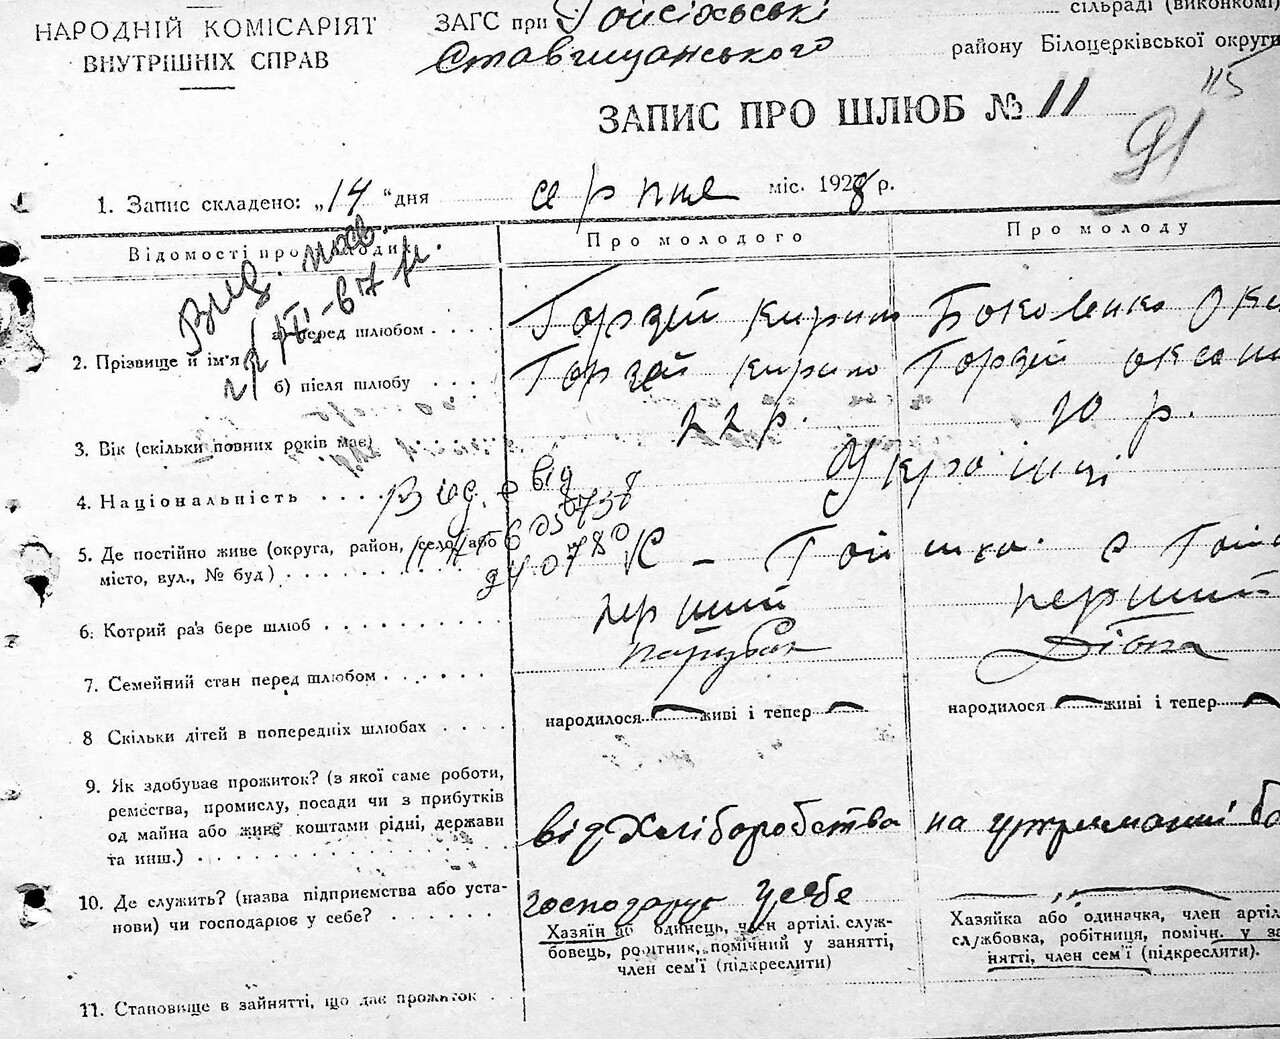 НАРОДНІЙ КОМІСАРІЯТ
ВНУТРІШНІХ СПРАВ
ЗАГС при сільраді (виконкомі)
Ставищанського району Білоцерківської округи
115
ЗАПИС ПРО ШЛЮБ № 11
91
1. Запис складено: „14 “ дня серпня міс. 1928 р.
Відомості про молодих Про молодого Про молоду
а) перед шлюбом Гордій Кирило Боколенко
2. Прізвище й ім'я
б) після шлюбу Гордій Кирило Гордій Оксана
3. Вік (скільки повних років має) 22 р. 20 р.
4. Національність Українці
5. Де постійно живе (округа, район, село, або
місто, вул., № буд)
6. Котрий раз бере шлюб перший перший
7. Семейний стан перед шлюбом парубок Дівка
8 Скільки дітей в попередніх шлюбах народилося — живі і тепер — народилося — живі і тепер —
9. Як здобуває прожиток? (з якої саме роботи,
ремества, промислу, посади чи з прибутків
од майна або живе коштами рідні, держави
та инш.) від Хліборобства на утриманні
10. Де служить? (назва підприємства або уста-
нови) чи господарює у себе? господарює у себе
Хазяїн або одинець, член артілі, служ-
бовець, робітник, помічний у занятті,
член сем'ї (підкреслити)
Хазяйка або одиначка, член артіл
службовка, робітниця, помічн. у за
нятті, член сем'ї (підкреслити).
11. Становище в зайнятті, що дає прожиток